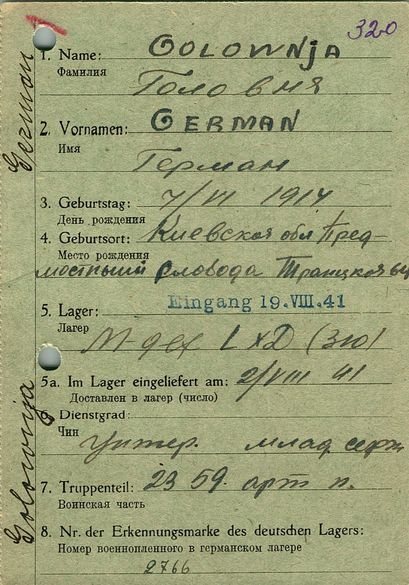 320
1. Name: GOLOWNJA
Фамилия
Головня
2. Vornamen: GERMAN
Имя
Герман
3. Geburtstag: 7/VI 1914
День рождения
4. Geburtsort: Киевская обл Пред-
Место рождения
мостный слобода
5. Lager: Eingang 19.VIII.41
Лагерь
5a. Im Lager eingeliefert am: 2/VIII 41
Доставлен в лагерь (число)
6. Dienstgrad:
Чин
Унтер. млад. серж
7. Truppenteil: 23 59. арт п.
Воинская часть
8. Nr. der Erkennungsmarke des deutschen Lagers:
Номер военнопленного в германском лагере
2766
German
Golownja